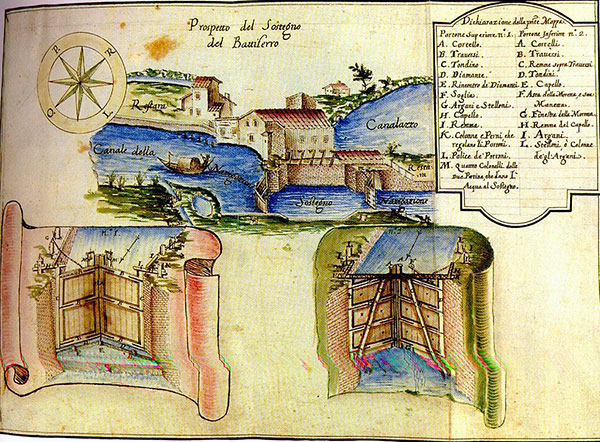 Prospetto del Sostegno
del Battiferro
P
R
O
L
Restara
Canale della
Navigatione
Canalazzo
Sostegno
Navigatione
Restara
Dichiarazione della pñte Mappa.
Portone Superiore n.º 1. Portone Inferiore n.º 2.
A. Cortello. A. Cortelli.
B. Traversi. B. Traversi.
C. Tondino. C. Remna sopra Traversi
D. Diamante. D. Tondini.
E. Rinontro de Diamanti E. Capello
F. Soglia. F. Asta della Morena, e sua
G. Argani e Stelloni. Manezza.
H. Capello G. Finestra della Morena.
I. Remna. H. Remna del Capello.
K. Colonne e Perni, che I. Argani.
regolano li Portoni. L. Stelloni, ò Colonne
L. Police de' Portoni. degl'Argani.
M. Quattro Colonelli delle
Due Portine, che dano l'
Acqua al Sostegno.
n.º 1
n.º 2